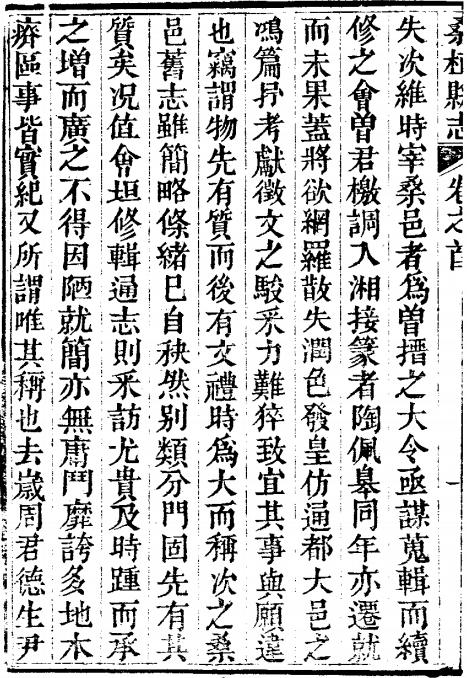 桑植縣志 卷之首
失次維時宰桑邑者爲曾搢之大令亟謀蒐輯而續
修之會曾君檄調入湘接篆者陶佩皋同年亦遷就
而未果蓋將欲網羅散失潤色發皇仿通都大邑之
鴻篇考獻徵文之駿釆力難猝致宜其事與願違
也竊謂物先有質而後有文禮時爲大而稱次之桑
邑舊志雖簡略條緒已自秩然别類分門固先有其
質矣况值會垣修輯通志則釆訪尤貴及時踵而承
之增而廣之不得因陋就簡亦無庸鬥靡誇多地木
瘠區事皆實紀又所謂唯其稱也去歲周君德生尹